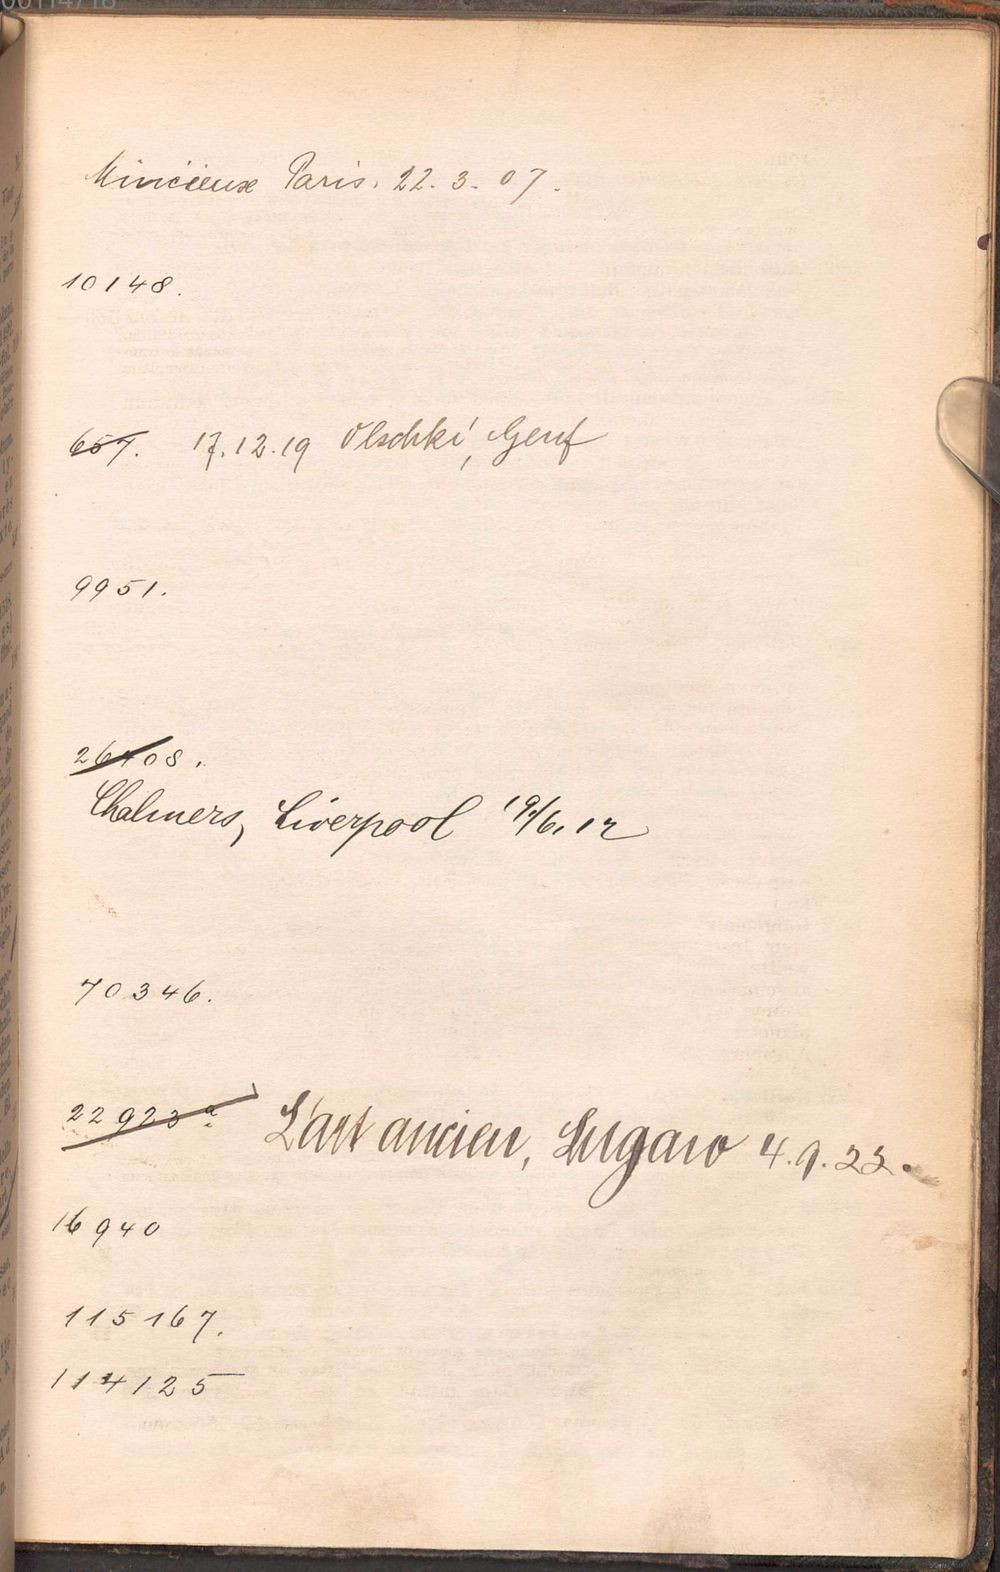 Paris. 22. 3. 07.
10148.
657. 17.12.19 Olschki, Genf
9951.
26708.
Chalmers, Liverpool 19/6. 12
70346.
22923a L'art ancien, Lugano 4.9.22.
16940
115167.
114125